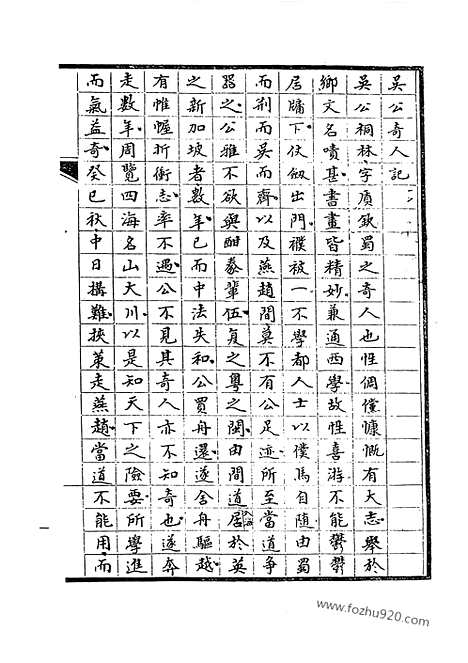 吳公奇人記
吳公桐林字質欽蜀之奇人也性倜儻慷慨有大志舉於
鄉文名嘖甚書畫皆精妙兼通西學故性喜游不能鬱鬱
居牖下仗劔出門襆被一不學都人士以僕馬自隨由蜀
而荆而吳而齊以及燕趙間莫不有公足迹所至當道爭
器之公雅不欲與酣豢輩伍复之粵之閩由間道居於英
之新加坡者數年已而中法失和公買舟還遂舍舟驅越
有惟幄折衝志率不遇公不見其奇人亦不知奇也遂奔
走數年周覽四海名山大川以是知天下之險要所學進
而氣益奇癸巳秋中日搆難挾策走燕趙當道不能用而
www.fozhu920.com